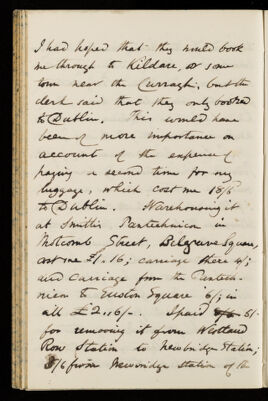 I had hoped that they would book
me through to Kildare, or some
town near the Curragh, but the
clerk said that they only booked
to Dublin. This would have
been of more importance on
account of the expense of
paying a second time for my
luggage, which cost me 16/6
to Dublin. Warehousing it
at Smith's Pantechnicon in
Motcomb Street, Belgrave Square,
cost me £1.16; carriage there 4/;
and carriage from the Pantech-
nicon to Euston Square 6/; in
all £2.16/-. I paid 5/-
for removing it from Westland
Row Station to Newbridge Station;
3/6 from Newbridge station of the